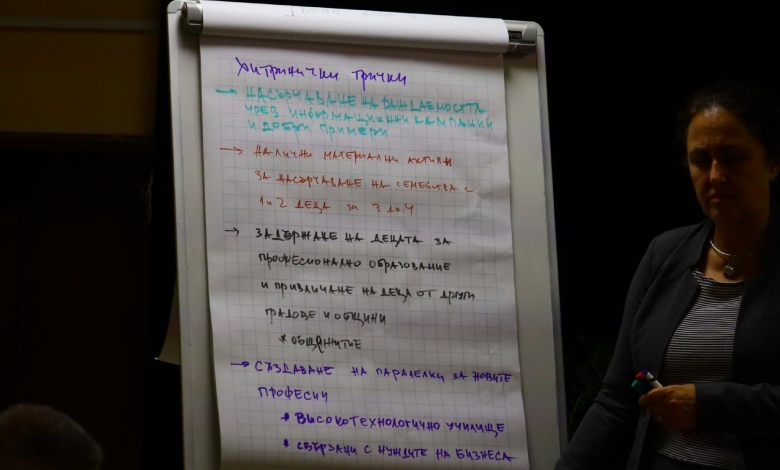 Хитринички трички
→ НАСЪРЧАВАНЕ НА РАЖДАЕМОСТТА
ЧРЕЗ ИНФОРМАЦИОННИ КАМПАНИИ
И ДОБРИ ПРИМЕРИ
→ НАЛИЧНИ МАТЕРИАЛНИ АКТИВИ
ЗА НАСЪРЧАВАНЕ НА СЕМЕЙСТВА С
1 и 2 ДЕЦА ЗА 3 ДО 4
→ ЗАДЪРЖАНЕ НА ДЕЦАТА ЗА
ПРОФЕСИОНАЛНО ОБРАЗОВАНИЕ
И ПРИВЛИЧАНЕ НА ДЕЦА ОТ ДРУГИ
ГРАДОВЕ И ОБЩИНИ
* ОБЩЕЖИТИЕ
→ СЪЗДАВАНЕ НА ПАРАЛЕЛКИ ЗА НОВИТЕ
ПРОФЕСИИ
* ВИСОКОТЕХНОЛОГИЧНО УЧИЛИЩЕ
* СВЪРЗАНИ С НУЖДИТЕ НА БИЗНЕСА